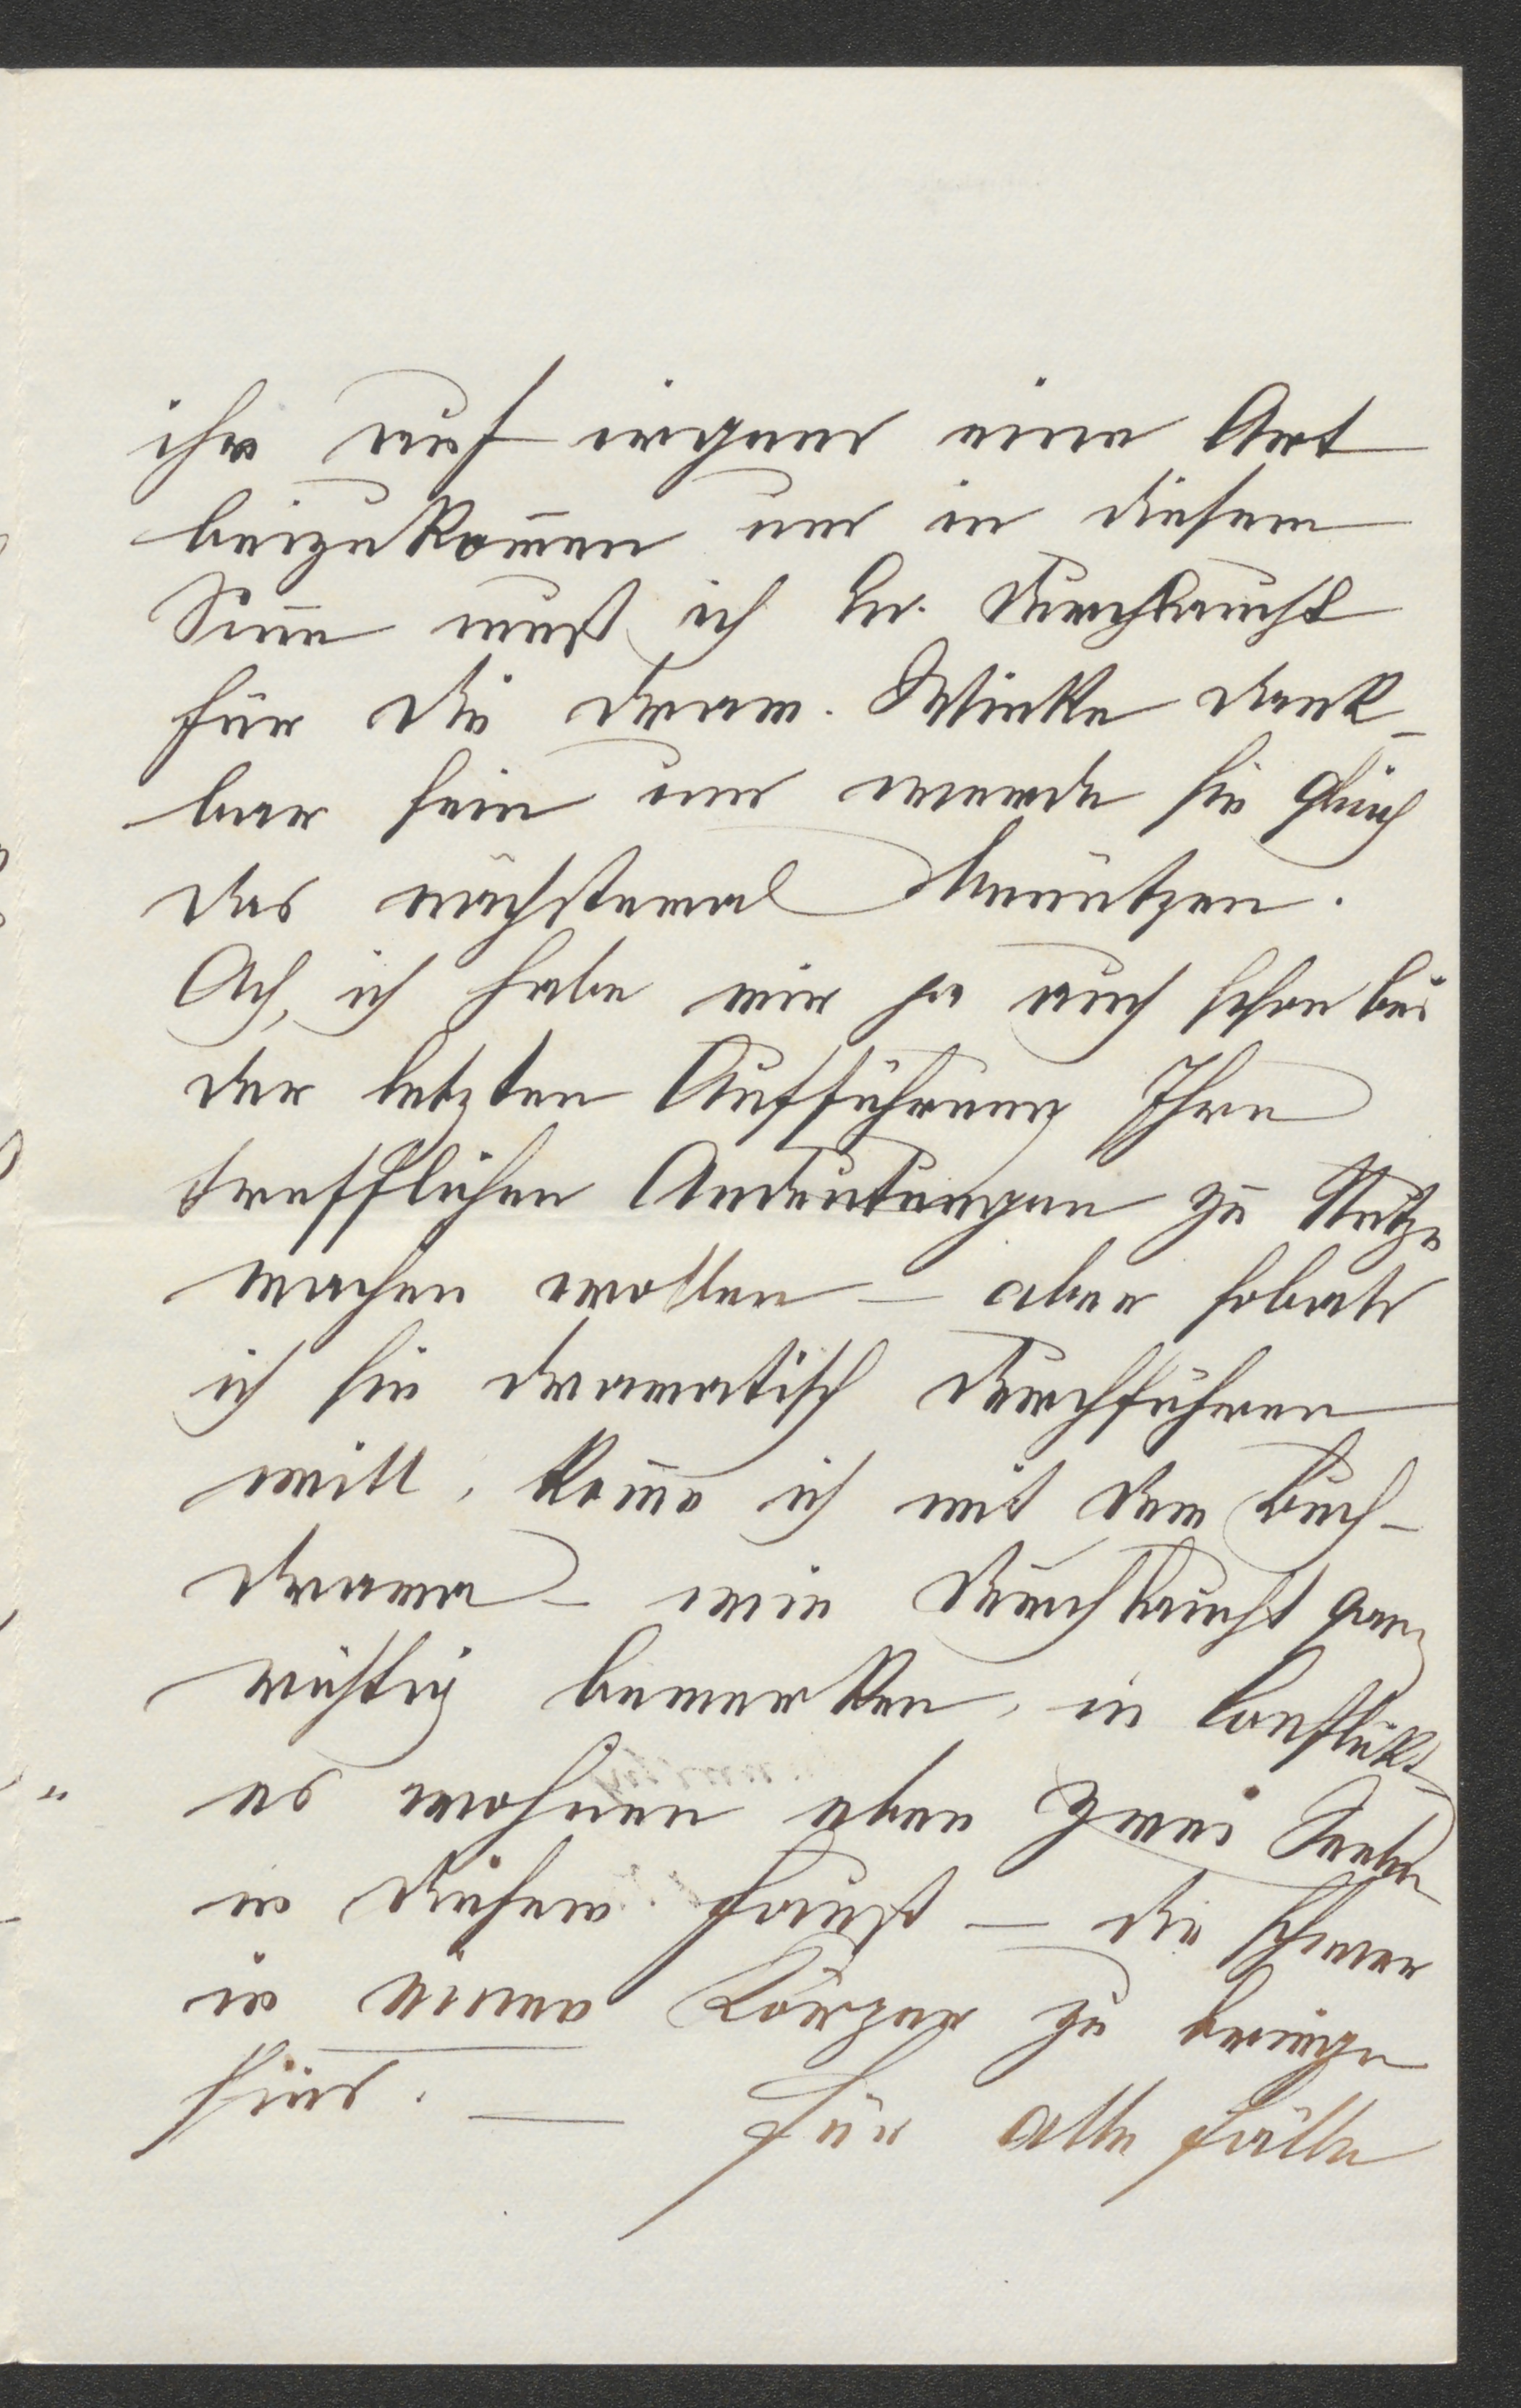 ihr auf irgend eine Art
beizukom̅en und in diesem
Sin̅e muß ich Ew. Durchlaucht
für die dram. Winke dank-
bar sein und werde sie gleich
das nächstemal benützen.
Ach, ich habe mir ja auch schon bei
der letzten Aufführung Ihre
trefflichen Andeutungen zu Nutze
machen wollen – aber sobald
ich sie dramatisch durchführen
will, kom̅e ich mit dem Buch-
drama – wie Durchlaucht ganz
richtig bemerken, in Conflikt –
es wohnen eben zwei Seelen
in diesem Faust – die schwer
in einen Körper zu bringen
sind. — Für alle Fälle